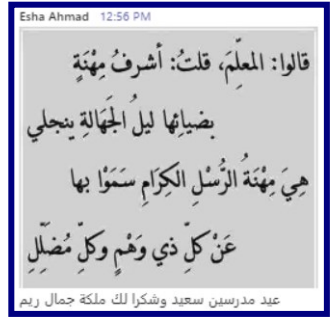 Esha Ahmad 12:56 PM
قالوا: المعلّمَ، قلتُ: أشرفُ مِهْنَةٍ
بضيائِها ليلُ الجَهَالةِ ينجلي
هِيَ مِهْنَةُ الرُّسْلِ الكِرَامِ سَمَوْا بها
عَنْ كلِّ ذي وَهْمٍ وكلِّ مُضَلِّلِ
عيد مدرسين سعيد وشكرا لك ملكة جمال ريم